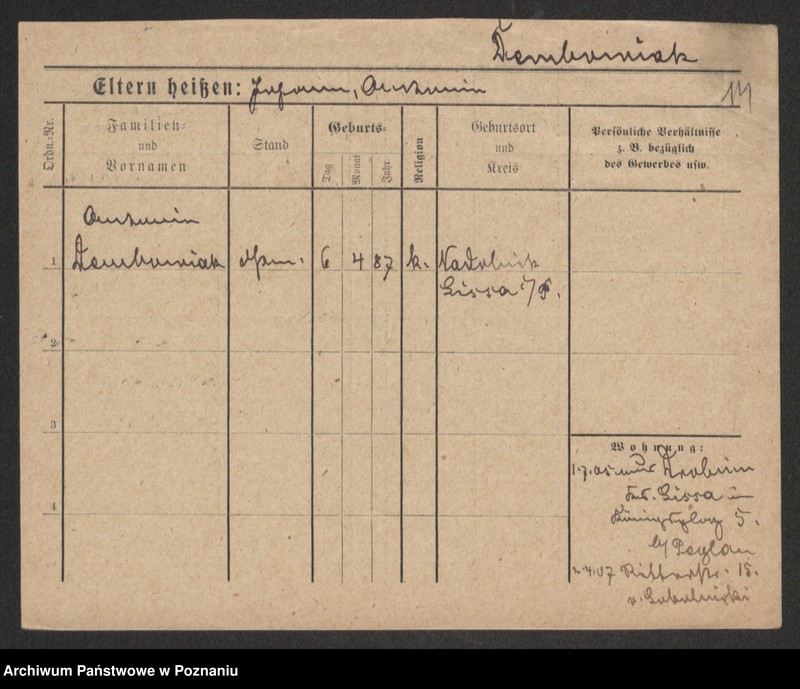 Dembowiak
Eltern heißen: Johann, Antonin
Ordn.-Nr.
Familien-
und
Vornamen
Stand
Geburts-
Tag
Monat
Jahr
Religion
Geburtsort
und
Kreis
Persönliche Verhältnisse
z. B. bezüglich
des Gewerbes usw.
Antonin
1 Dembowiak 6 4 87 k.
Lissa i/P.
2
3
4
Wohnung:
1.7.05
Lissa in
Königsplatz 5.
b/
4.07 Ritterstr. 15.
v.
Archiwum Państwowe w Poznaniu